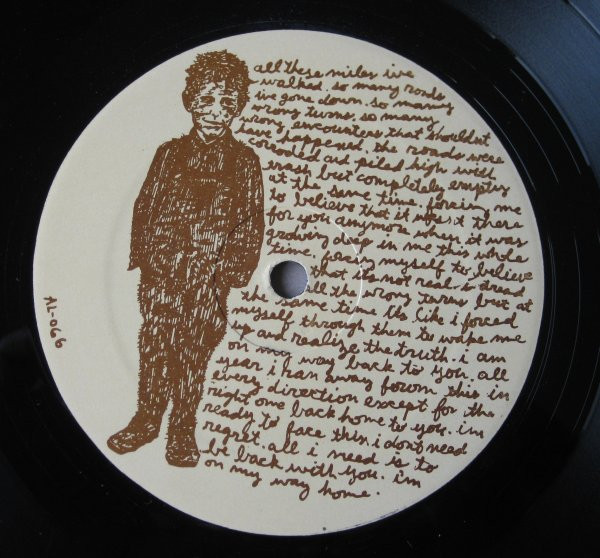 all these miles ive
walked. so many roads
ive gone down. so many
wrong turns. so many
wrong encounters that shouldnt
have happened. the roads were
corroded and piled high with
trash but completely empty
at the same time. forcing me
to believe that it wasnt there
for you anymore when it was
growing deep in me this whole
time. fears myself to believe
that its not real. i dread
all the wrong turns but at
the same time its like i forced
myself through them to wake me
up and realize the truth. i am
on my way back to you. all
year i ran away from this in
every direction except for the
right one back home to you. im
ready to face this. i dont need
regret. all i need is to
be back with you. im
on my way home.
AL-066